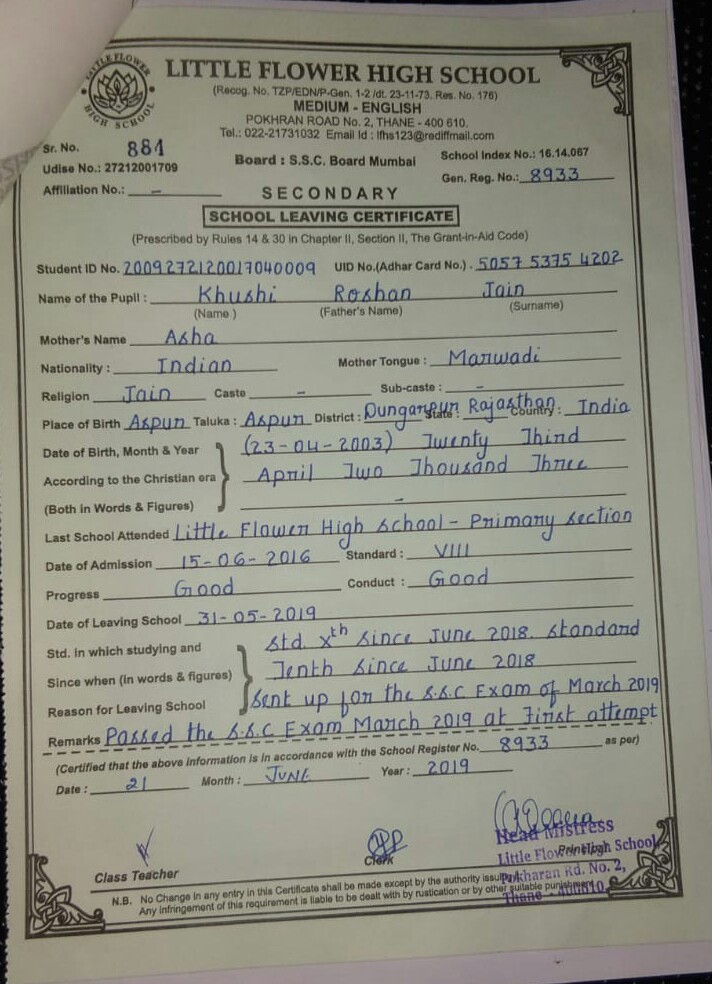 LITTLE FLOWER
HIGH SCHOOL
LITTLE FLOWER HIGH SCHOOL
(Recog. No. TZP/EDN/P-Gen. 1-2 /dt. 23-11-73. Res. No. 176)
MEDIUM - ENGLISH
POKHRAN ROAD No. 2, THANE - 400 610.
Tel.: 022-21731032 Email Id : lfhs123@rediffmail.com
Sr. No. 884
Udise No.: 27212001709 Board : S.S.C. Board Mumbai School Index No.: 16.14.067
Affiliation No.: - Gen. Reg. No.: 8933
SECONDARY
SCHOOL LEAVING CERTIFICATE
(Prescribed by Rules 14 & 30 in Chapter II, Section II, The Grant-in-Aid Code)
Student ID No. 2009272120017040009 UID No.(Adhar Card No.) . 5057 5375 4202
Name of the Pupil : Khushi Roshan Jain
(Name ) (Father's Name) (Surname)
Mother's Name Asha
Nationality : Indian Mother Tongue : Marwadi
Religion Jain Caste - Sub-caste : -
Place of Birth Aspur Taluka : Aspur District : Dungarpur State : Rajasthan Country : India
Date of Birth, Month & Year (23-04-2003) Twenty Third
According to the Christian era April Two Thousand Three
(Both in Words & Figures) -
Last School Attended Little Flower High School - Primary section
Date of Admission 15-06-2016 Standard : VIII
Progress Good Conduct : Good
Date of Leaving School 31-05-2019
Std. in which studying and Std. Xth since June 2018. standard
Since when (in words & figures) Tenth since June 2018
Reason for Leaving School Sent up for the S.S.C Exam of March 2019
Remarks Passed the S.S.C Exam March 2019 at First attempt
(Certified that the above information is in accordance with the School Register No. 8933 as per)
Date : 21 Month : JUNE Year : 2019
Class Teacher Clerk Principal
Head Mistress
Little Flower High School
Pokharan Rd. No. 2,
Thane - 400610.
N.B. No Change in any entry in this Certificate shall be made except by the authority issuing
Any infringement of this requirement is liable to be dealt with by rustication or by other suitable punishment.